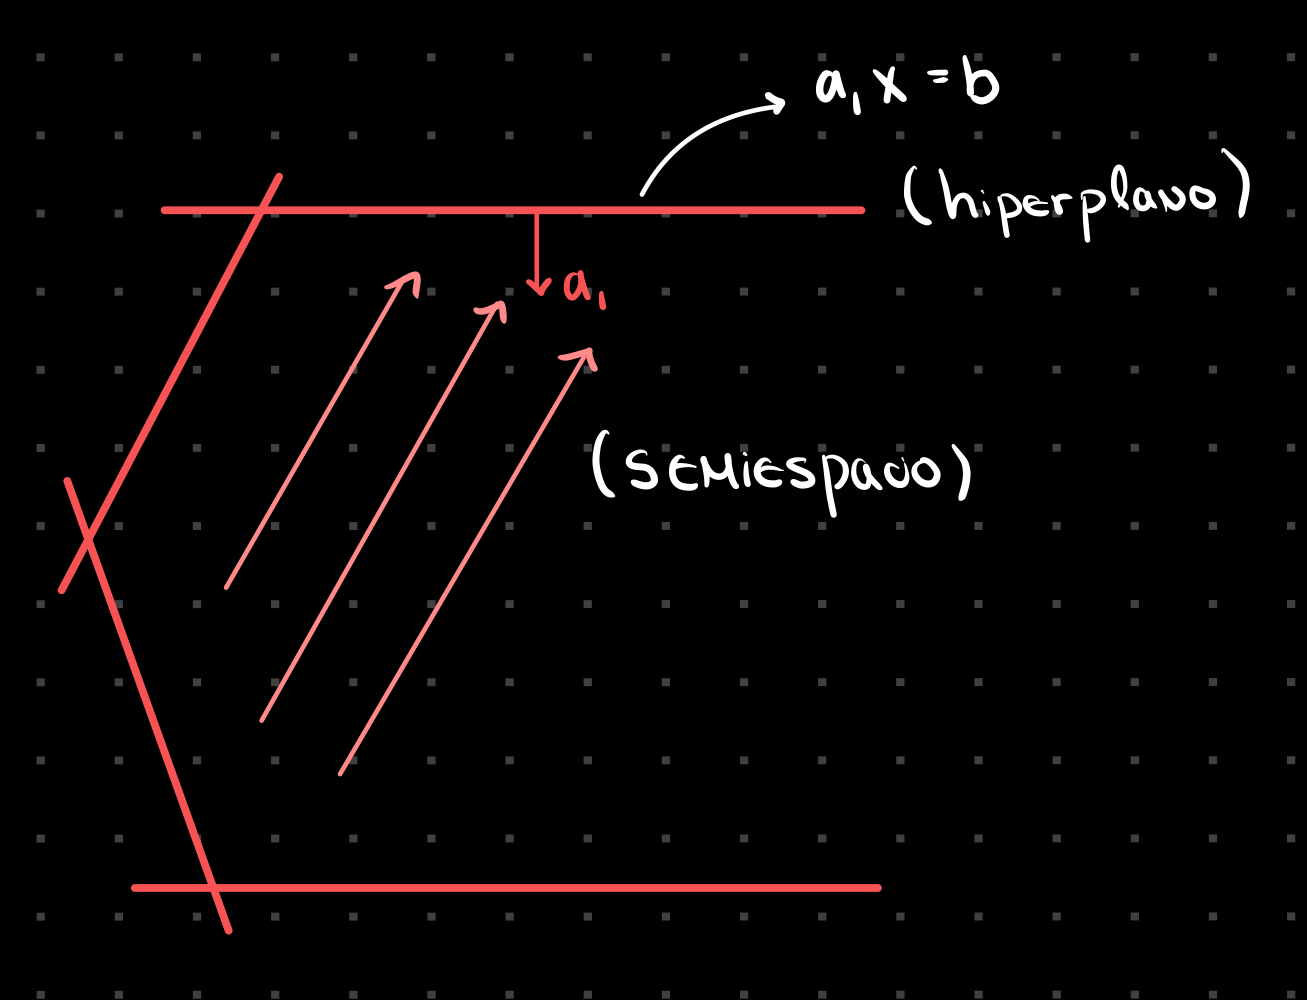 a₁ x = b
(hiperplano)
a₁
(semiespacio)